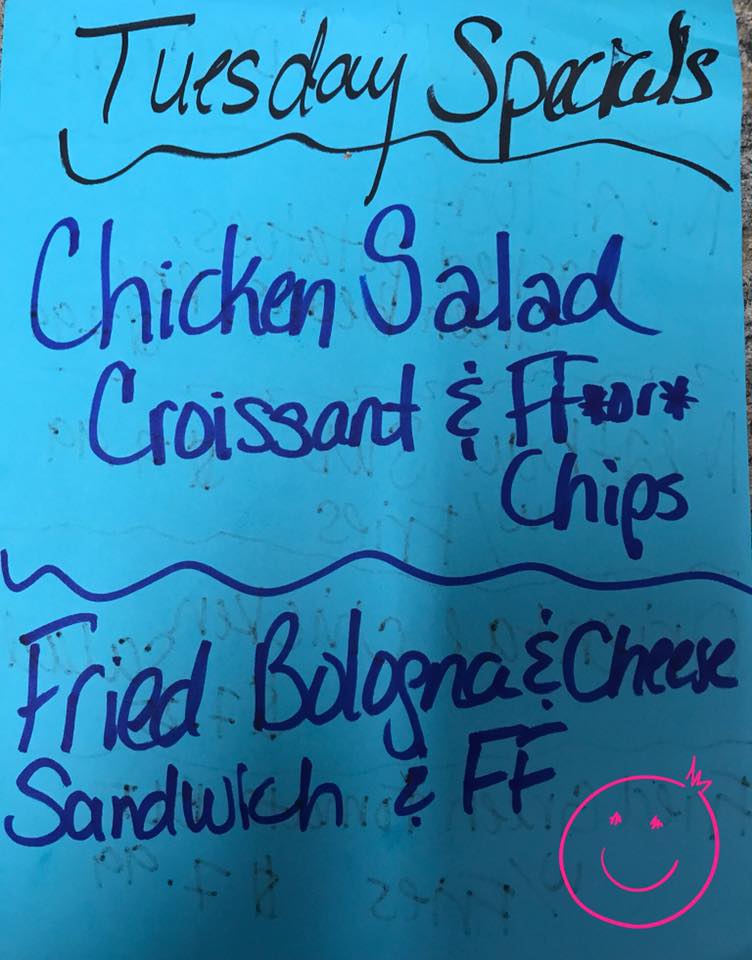 Tuesday Specials
Chicken Salad
Croissant & FF *or*
Chips
Fried Bologna & Cheese
Sandwich & FF